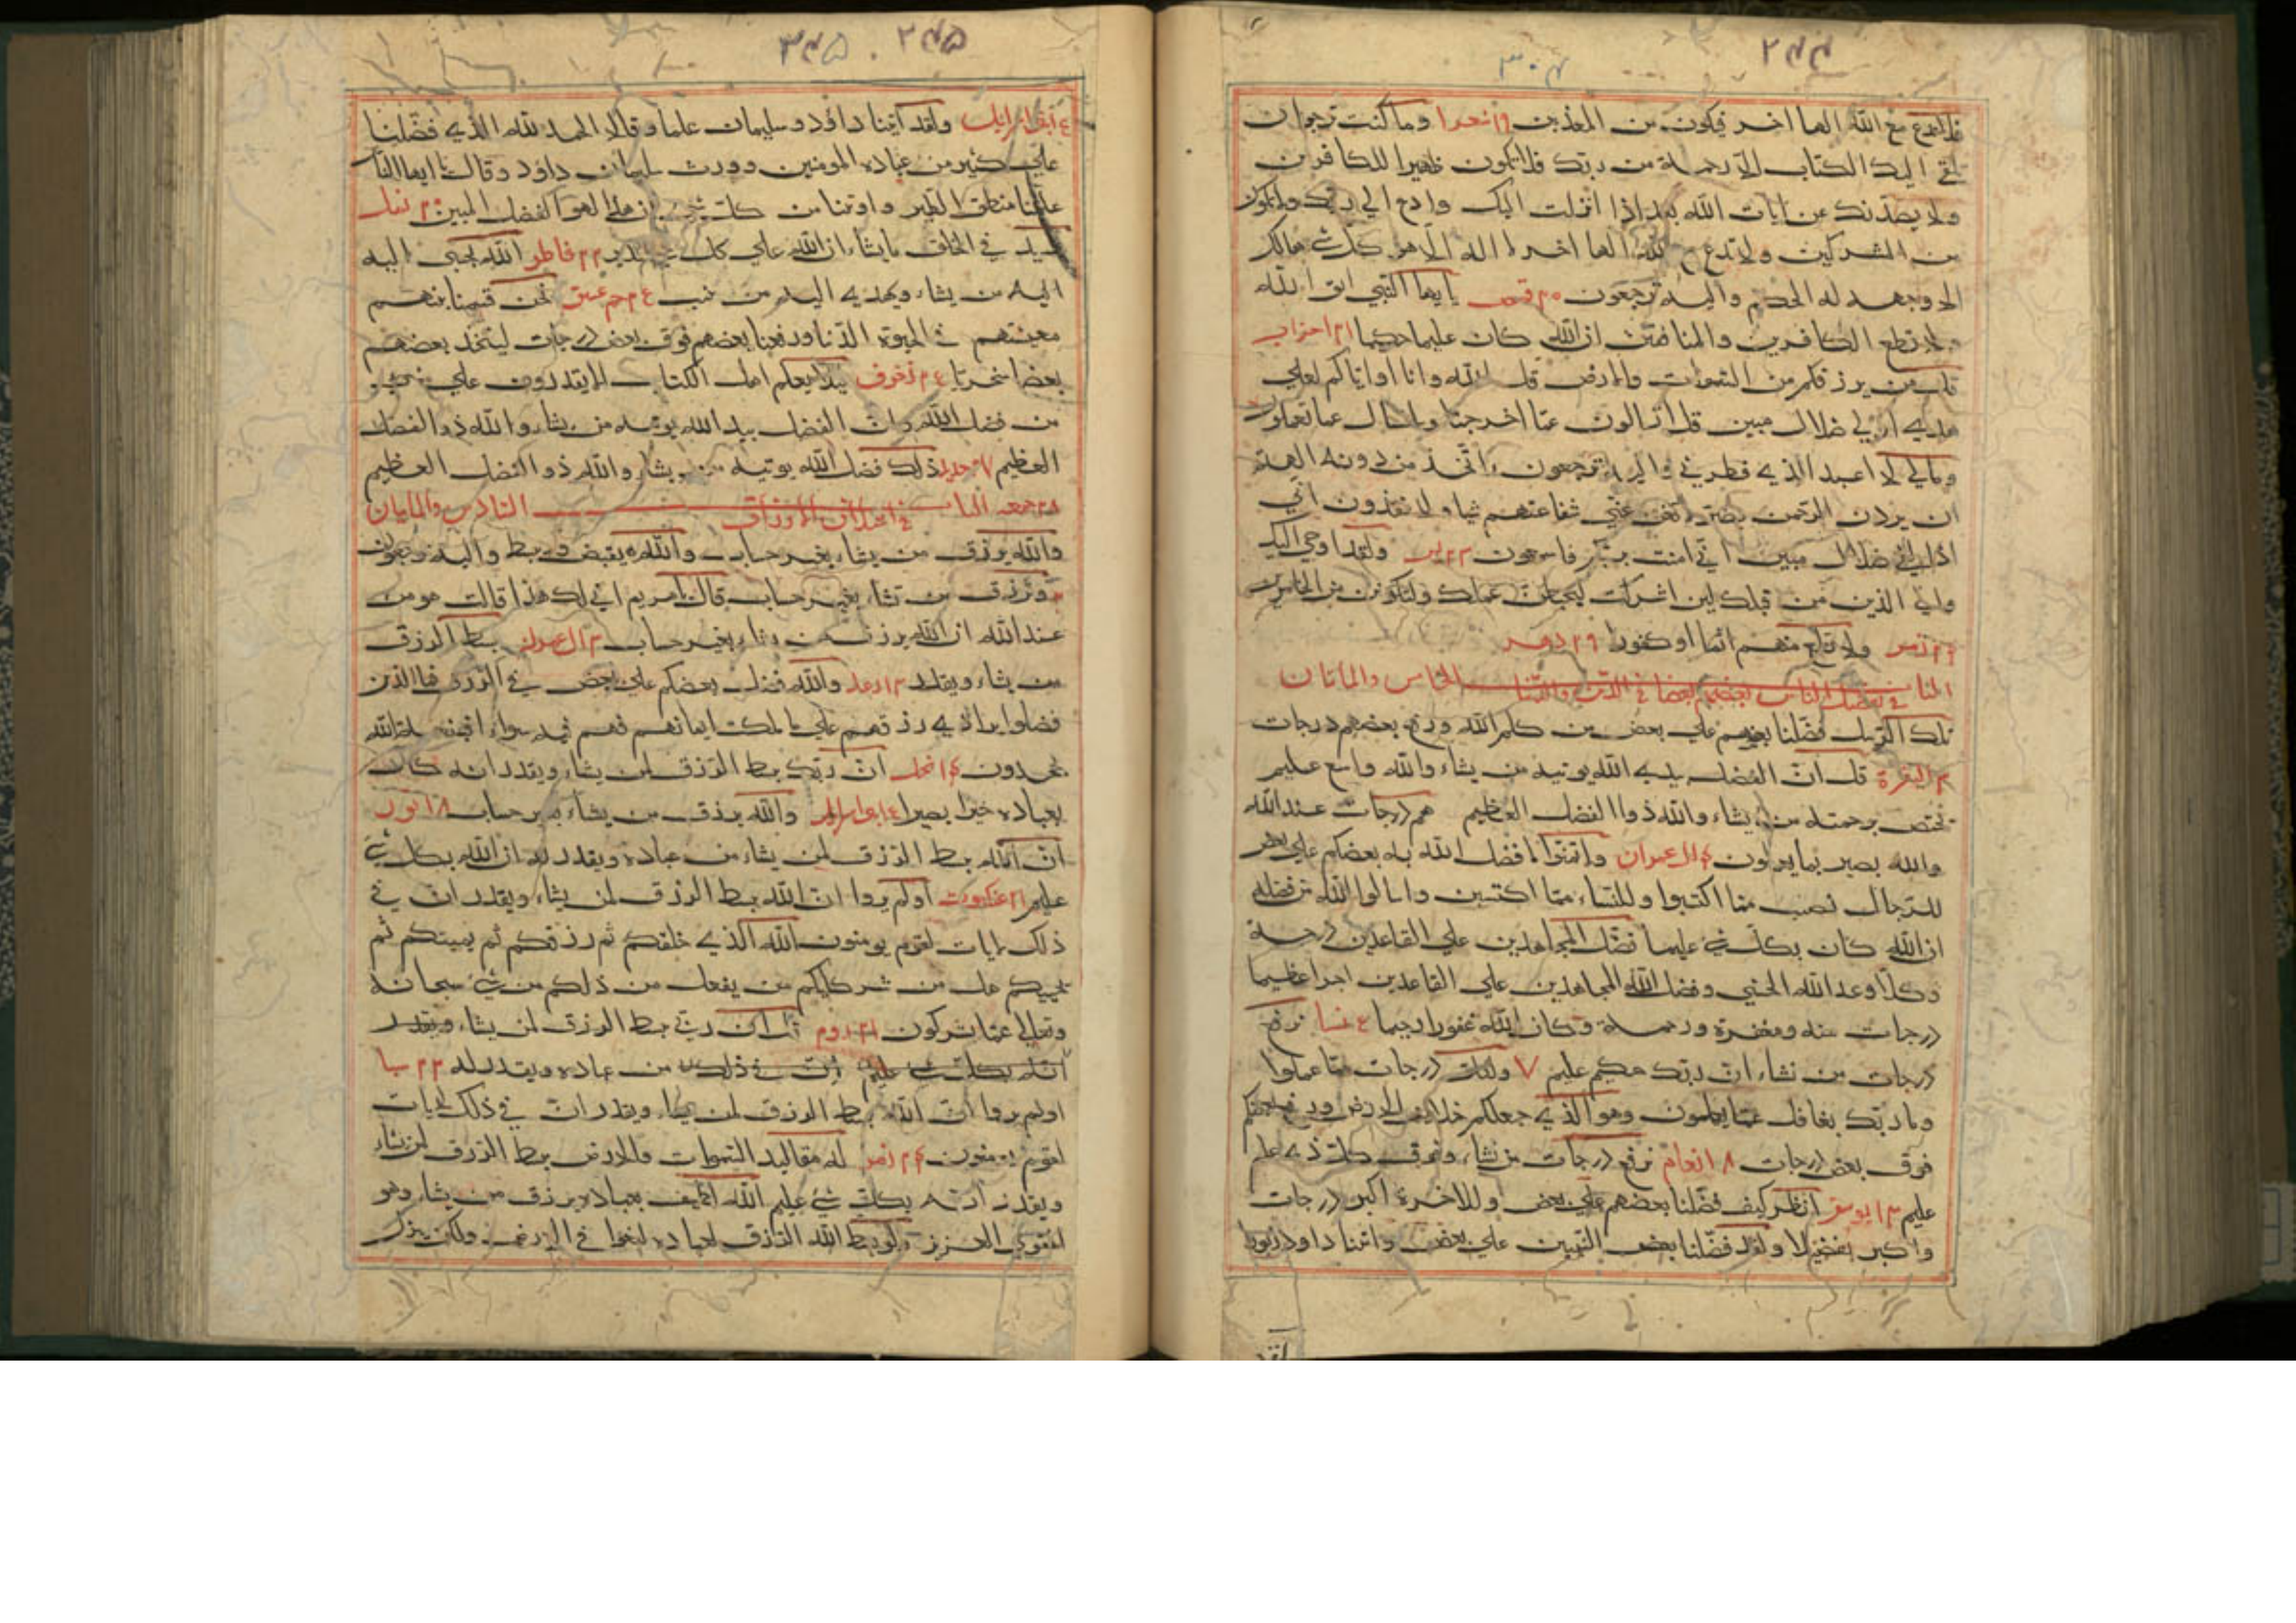 ۲۴۴
۳۰۴
فلا تدع مع الله الها اخر فيكون من المعذبين ۱۹ شعرا وما كنت ترجوا ان
يلقي اليك الكتاب الا رحمة من ربك فلا تكون ظهيرا للكافرين
ولا يصدنك عن ايات الله بعد اذا انزلت اليك وادع الي ربك ولا تكون
من المشركين ولا تدع مع الله الها اخر لا اله الا هو كل شئ هالك
الا وجهه له الحكم واليه ترجعون ۲۰ قصص يا يها النبي اتق الله
ولا تطع الكافرين والمنافقين ان الله كان عليما حكيما ۲۱ احزاب
قل من يرزقكم من السموات والارض قل الله وانا او اياكم لعلي
هدي او في ضلال مبين قل لا تسالون عما اجرمنا ولا نسال عما تعملون
ومالي لا اعبد الذي فطرني واليه ترجعون ءاتخذ من دونه الهة
ان يردن الرحمن بضر لا تغن عني شفاعتهم شيا ولا ينقذون اني
اذا لفي ضلال مبين اني امنت بربكم فاسمعون ۲۳ يس ولقد اوحي اليك
والي الذين من قبلك لين اشركت ليحبطن عملك ولتكونن من الخاسرين
۲۴ زمر ولا تطع منهم اثما او كفورا ۲۹ دهر
الباب في تفضيل الناس بعضهم بعضا في الدين والدنيا الخامس والمايتان
تلك الرسل فضلنا بعضهم علي بعض من كلم الله ورفع بعضهم درجات
۳ البقرة قل ان الفضل بيد الله يوتيه من يشاء والله واسع عليم
يختص برحمته من يشاء والله ذوا الفضل العظيم هم درجات عند الله
والله بصير بما يعملون ۴ ال عمران ولا تتمنوا ما فضل الله به بعضكم علي بعض
للرجال نصيب مما اكتسبوا وللنساء مما اكتسبن واسالوا الله من فضله
ان الله كان بكل شئ عليما فضل المجاهدين علي القاعدين درجة
وكلا وعد الله الحسني وفضل الله المجاهدين علي القاعدين اجرا عظيما
درجات منه ومغفرة ورحمة وكان الله غفورا رحيما ع نسا نرفع
درجات من نشاء ان ربك حكيم عليم ۷ ولكل درجات مما عملوا
وما ربك بغافل عما يعملون وهو الذي جعلكم خلائف الارض ورفع بعضكم
فوق بعض درجات ۸ انعام نرفع درجات من نشاء وفوق كل ذي علم
عليم ۱۳ يوسف انظر كيف فضلنا بعضهم علي بعض وللاخرة اكبر درجات
واكبر تفضيلا ولقد فضلنا بعض النبيين علي بعض واتينا داود زبورا
لقد
۲۴۵ . ۳۴۵
بني اسرائيل ولقد اتينا داود وسليمان علما وقالا الحمد لله الذي فضلنا
علي كثير من عباده المومنين وورث سليمان داود وقال يا ايها الناس
علمنا منطق الطير واوتينا من كل شئ ان هذا لهو الفضل المبين ۲۰ نمل
يزيد في الخلق ما يشاء ان الله علي كل شئ قدير ۲۲ فاطر الله يجتبي اليه
اليه من يشاء ويهدي اليه من ينيب ع۲ حم عسق نحن قسمنا بينهم
معيشتهم في الحيوة الدنيا ورفعنا بعضهم فوق بعض درجات ليتخذ بعضهم
بعضا سخريا ع۲ زخرف ليلا يعلم اهل الكتاب الا يقدرون علي شئ
من فضل الله وان الفضل بيد الله يوتيه من يشاء والله ذو الفضل
العظيم ۲۷ حديد ذلك فضل الله يوتيه من يشاء والله ذو الفضل العظيم
۲۸ جمعه الباب في اختلاف الارزاق السادس والمايتان
والله يرزق من يشاء بغير حساب والله يقبض ويبسط واليه ترجعون
وترزق من تشاء بغير حساب قال يا مريم اني لك هذا قالت هو من
عند الله ان الله يرزق من يشاء بغير حساب ۳ ال عمران يبسط الرزق
من يشاء ويقدر ۱۳ رعد والله فضل بعضكم علي بعض في الرزق فما الذين
فضلوا برادي رزقهم علي ما ملكت ايمانهم فهم فيه سواء افبنعمة الله
يجحدون ۱۴ نحل ان ربك يبسط الرزق لمن يشاء ويقدر انه كان
بعباده خبيرا بصيرا بني اسرائيل والله يرزق من يشاء بغير حساب ۱۸ نور
ان الله يبسط الرزق لمن يشاء من عباده ويقدر له ان الله بكل شئ
عليم ۲۱ عنكبوت اولم يروا ان الله يبسط الرزق لمن يشاء ويقدر ان في
ذلك لايات لقوم يومنون الله الذي خلقكم ثم رزقكم ثم يميتكم ثم
يحييكم هل من شركايكم من يفعل من ذلكم من شئ سبحانه
وتعالي عما يشركون ۲۱ روم قل ان ربي يبسط الرزق لمن يشاء ويقدر
انه بكل شئ عليم ان في ذلك من عباده ويقدر له ۲۲ سبا
اولم يروا ان الله يبسط الرزق لمن يشاء ويقدر ان في ذلك لايات
لقوم يومنون ۲۴ زمر له مقاليد السموات والارض يبسط الرزق لمن يشاء
ويقدر انه بكل شئ عليم الله لطيف بعباده يرزق من يشاء وهو
القوي العزيز ولو بسط الله الرزق لعباده لبغوا في الارض ولكن ينزل